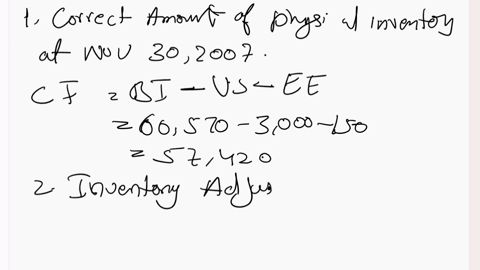 1, Correct Amount of physical inventory
at NOV 30, 2007.
CI = BI - US - EE
= 60,570 - 3,000 - 150
= 57,420
2 Inventory Adjus